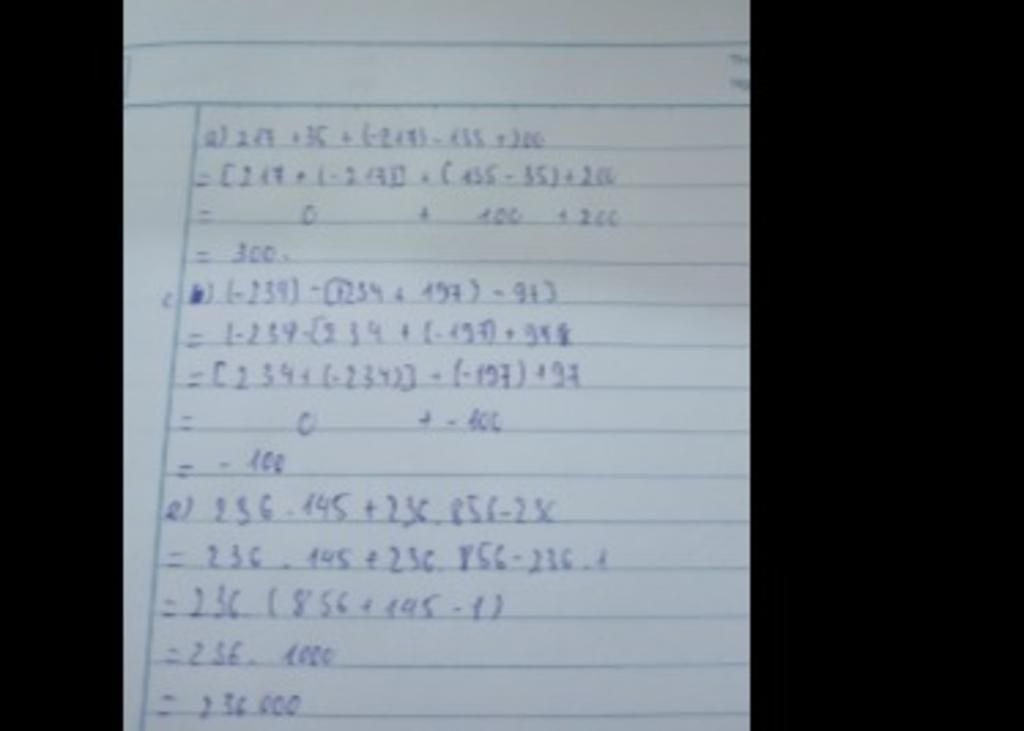 a) 217 + 35 + (-217) - 135 + 200
= [217 + (-217)] + (135 - 35) + 200
= 0 + 100 + 200
= 300.
c) (-234) - [(234 + 197) - 97]
= (-234 - [234 + (-197) + 97
= [234 + (-234)] - (-197) + 97
= 0 + - 100
= - 100
e) 236 . 145 + 236 . 856 - 236
= 236 . 145 + 236 . 856 - 236 . 1
= 236 ( 856 + 145 - 1)
= 236 . 1000
= 236000